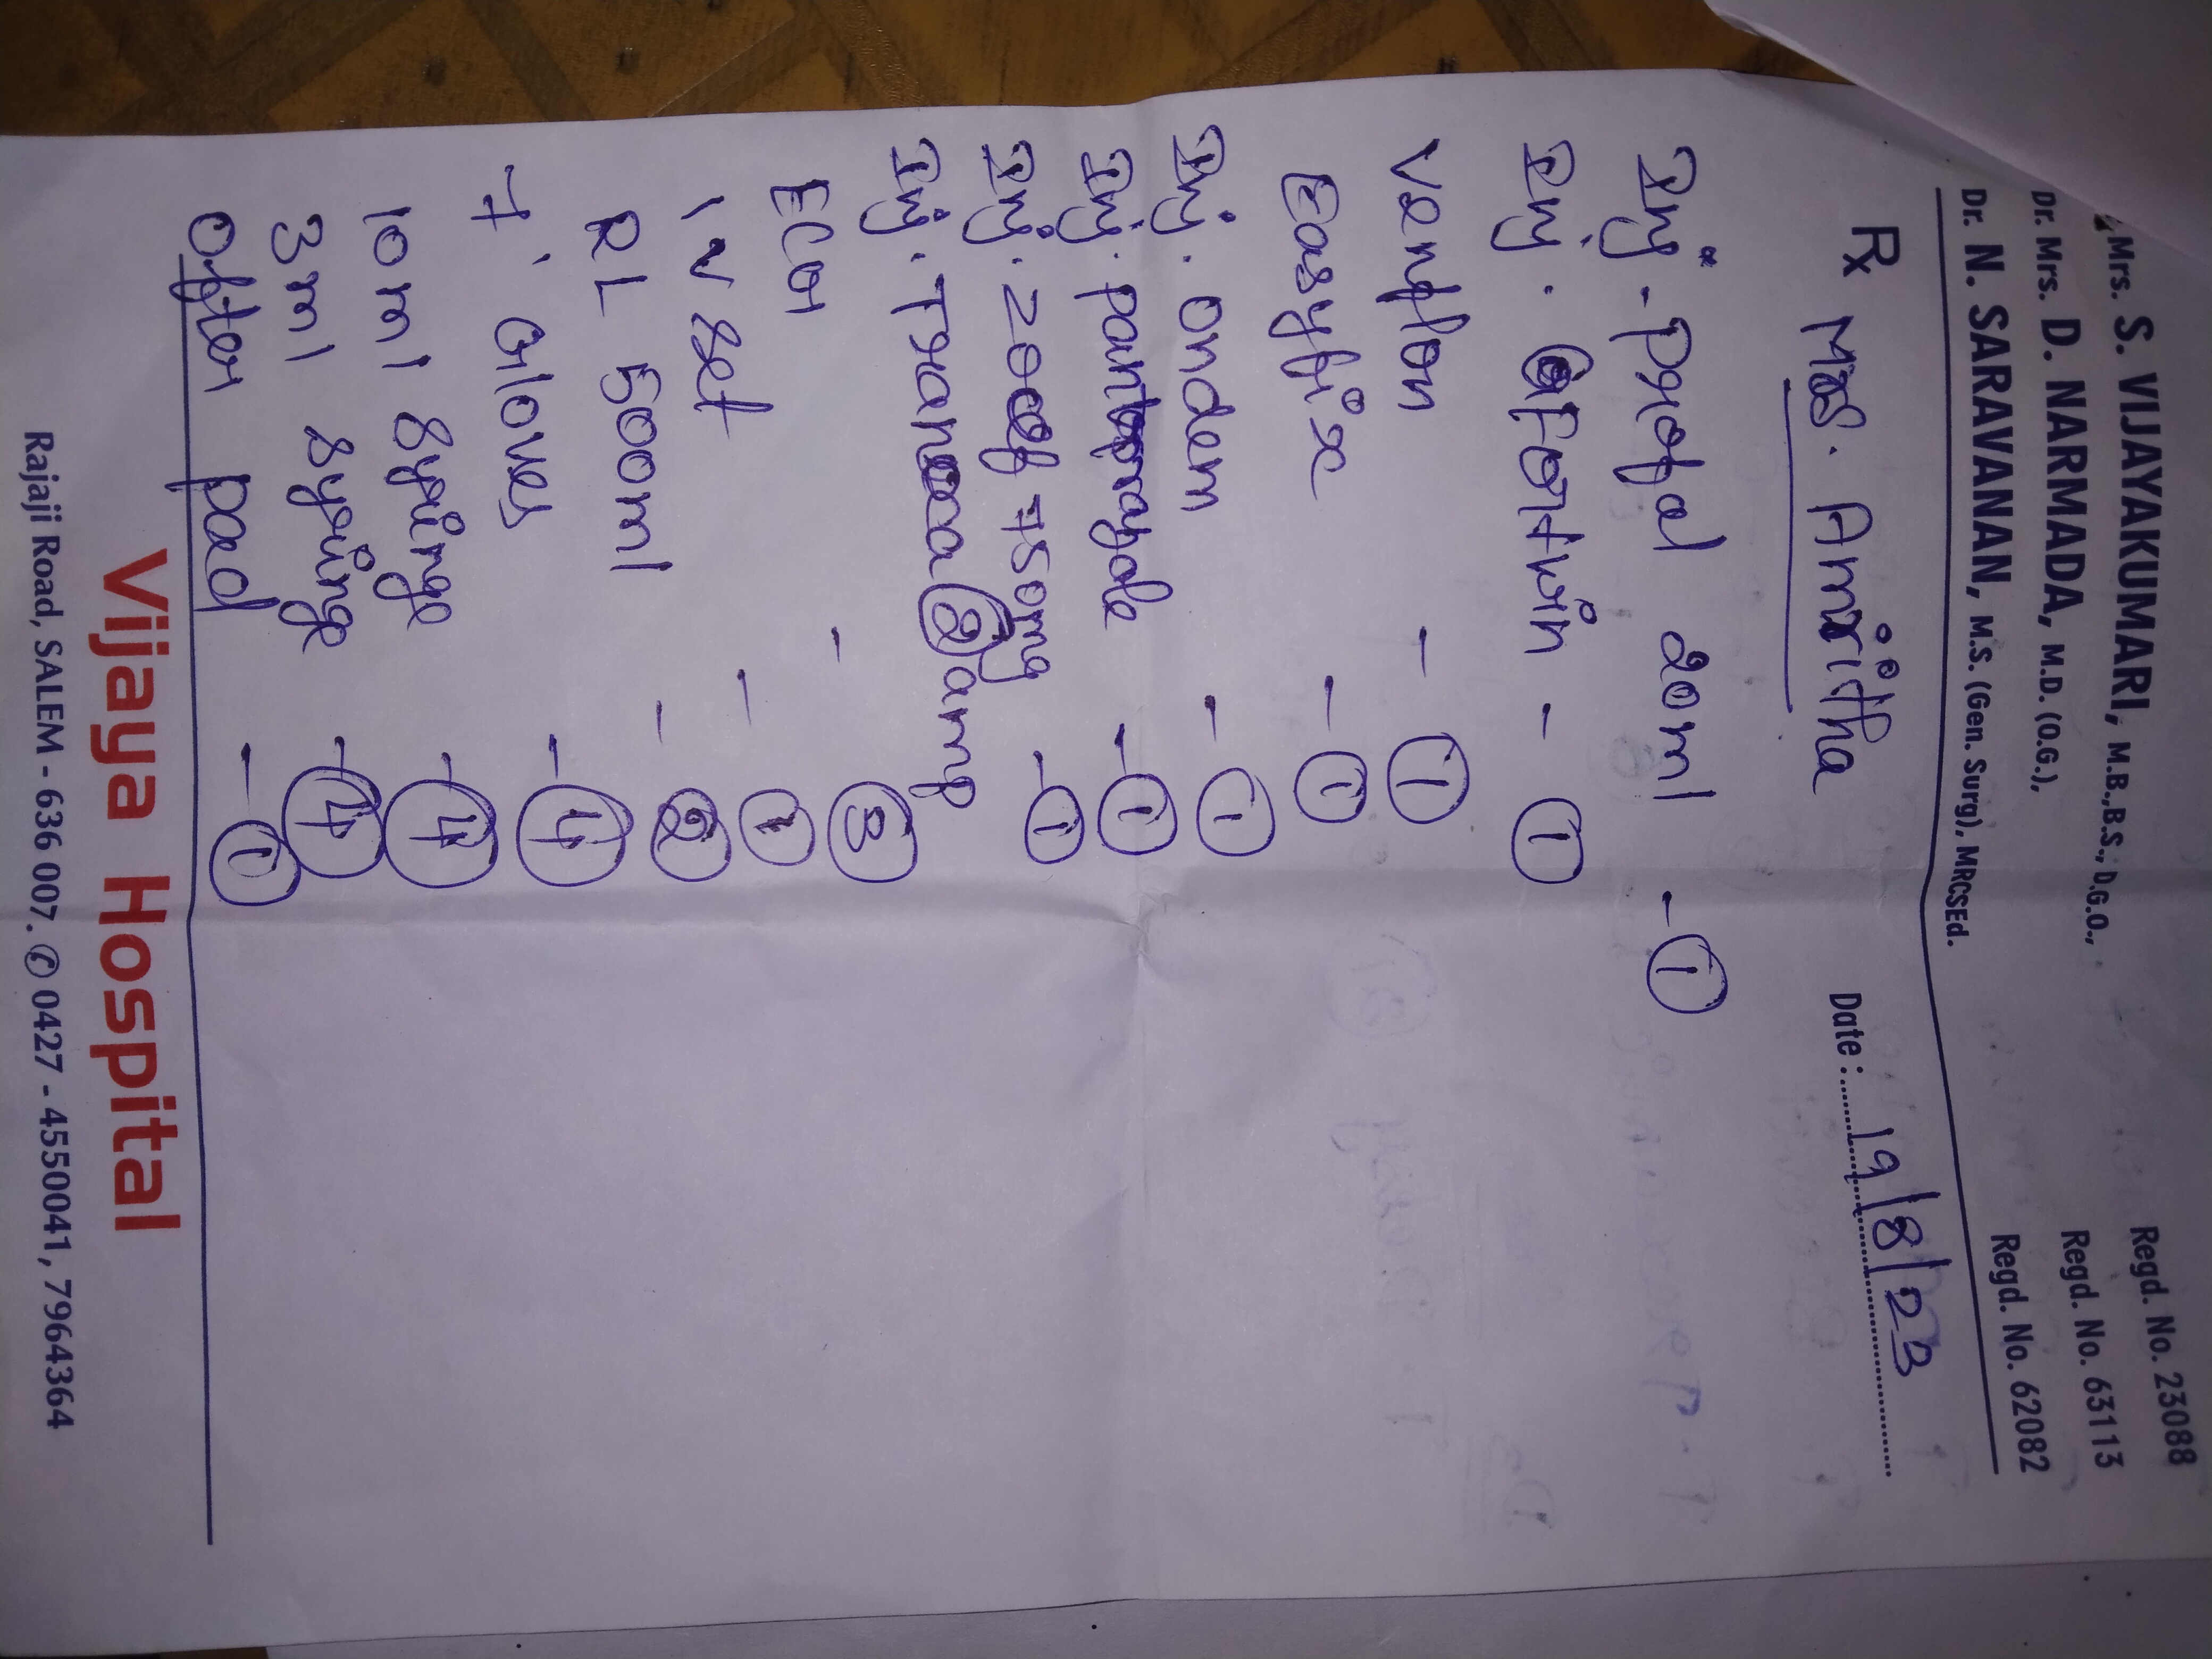 Mrs. S. VIJAYAKUMARI, M.B.,B.S., D.G.O., Regd. No. 23088
Dr. Mrs. D. NARMADA, M.D. (O.G.), Regd. No. 63113
Dr. N. SARAVANAN, M.S. (Gen. Surg), MRCSEd. Regd. No. 62082
Rx Mrs. Amiritha Date : 19/8/23
Inj. Profol 20ml - 1
Inj. Fortwin - 1
Venflon - 1
Easyfix - 1
Inj. ondem - 1
Inj. pantoprazole - 1
Inj. 750mg - 1
Inj. 2 amp
ECG - 3
IV set - 1
RL 500ml - 2
7' Gloves - 4
10ml Syringe - 4
3ml Syringe - 4
pad - 1
Vijaya Hospital
Rajaji Road, SALEM - 636 007. ✆ 0427 - 4550041, 7964364